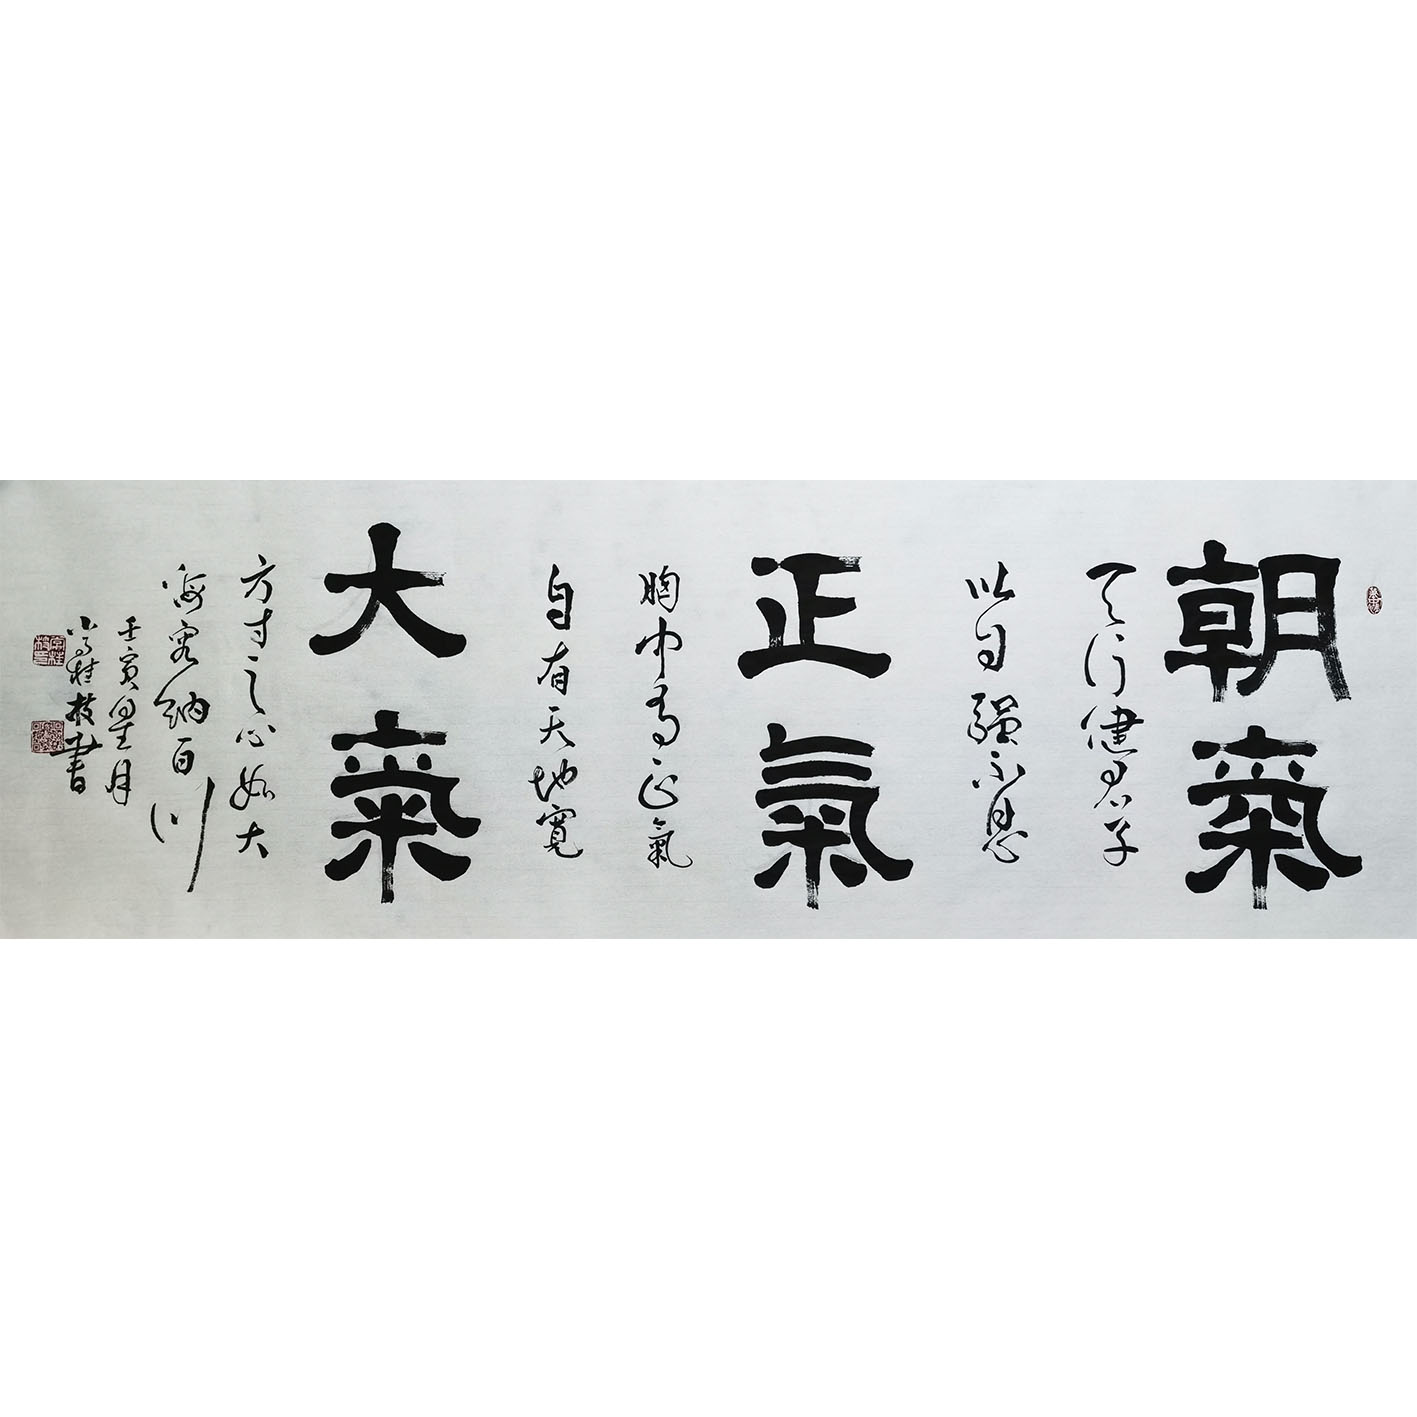 朝氣
天行健君子
以自強不息
正氣
胸中有正氣
自有天地寬
大氣
方寸之心如大
海容納百川
壬寅星月
桂枝書